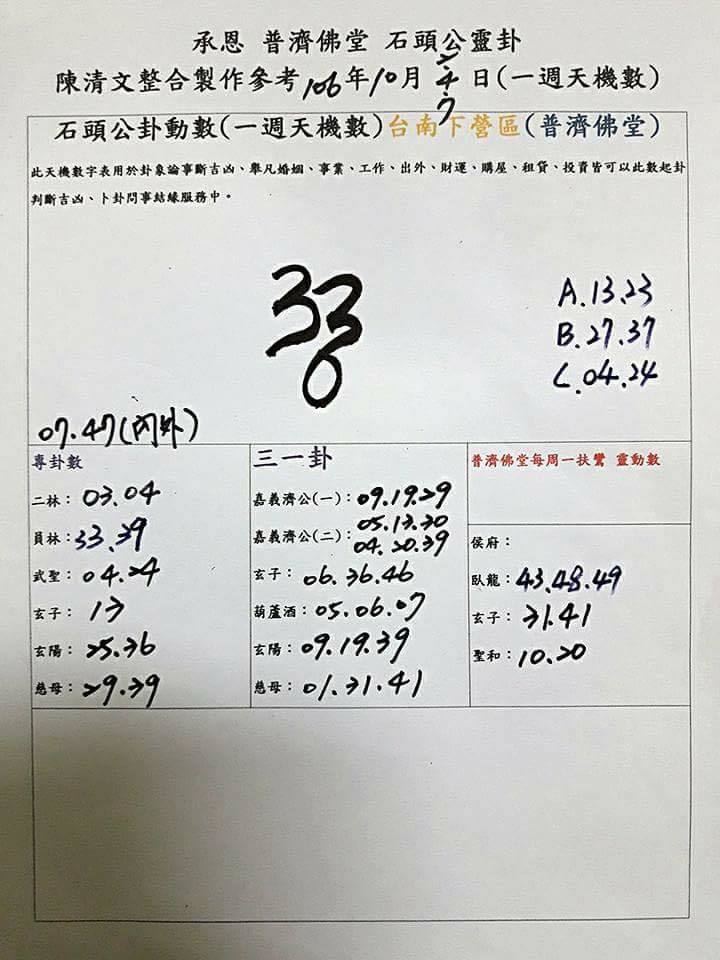 承恩 普濟佛堂 石頭公靈卦
陳清文整合製作參考106年10月2.4.7日(一週天機數)
石頭公卦動數(一週天機數)台南下營區(普濟佛堂)
此天機數字表用於卦象論事斷吉凶、舉凡婚姻、事業、工作、出外、財運、購屋、租貸、投資皆可以此數起卦
判斷吉凶、卜卦問事結緣服務中。
33
0
A.13.23
B.27.37
C.04.24
07.47(內外)
專卦數
二林：03.04
員林：33.39
武聖：04.24
玄子：13
玄陽：25.36
慈母：29.39
三一卦
嘉義濟公(一)：09.19.29
嘉義濟公(二)：05.13.30
04.20.39
玄子：06.36.46
葫蘆酒：05.06.07
玄陽：09.19.39
慈母：01.31.41
普濟佛堂每周一扶鸞 靈動數
侯府：
臥龍：43.48.49
玄子：31.41
聖和：10.20